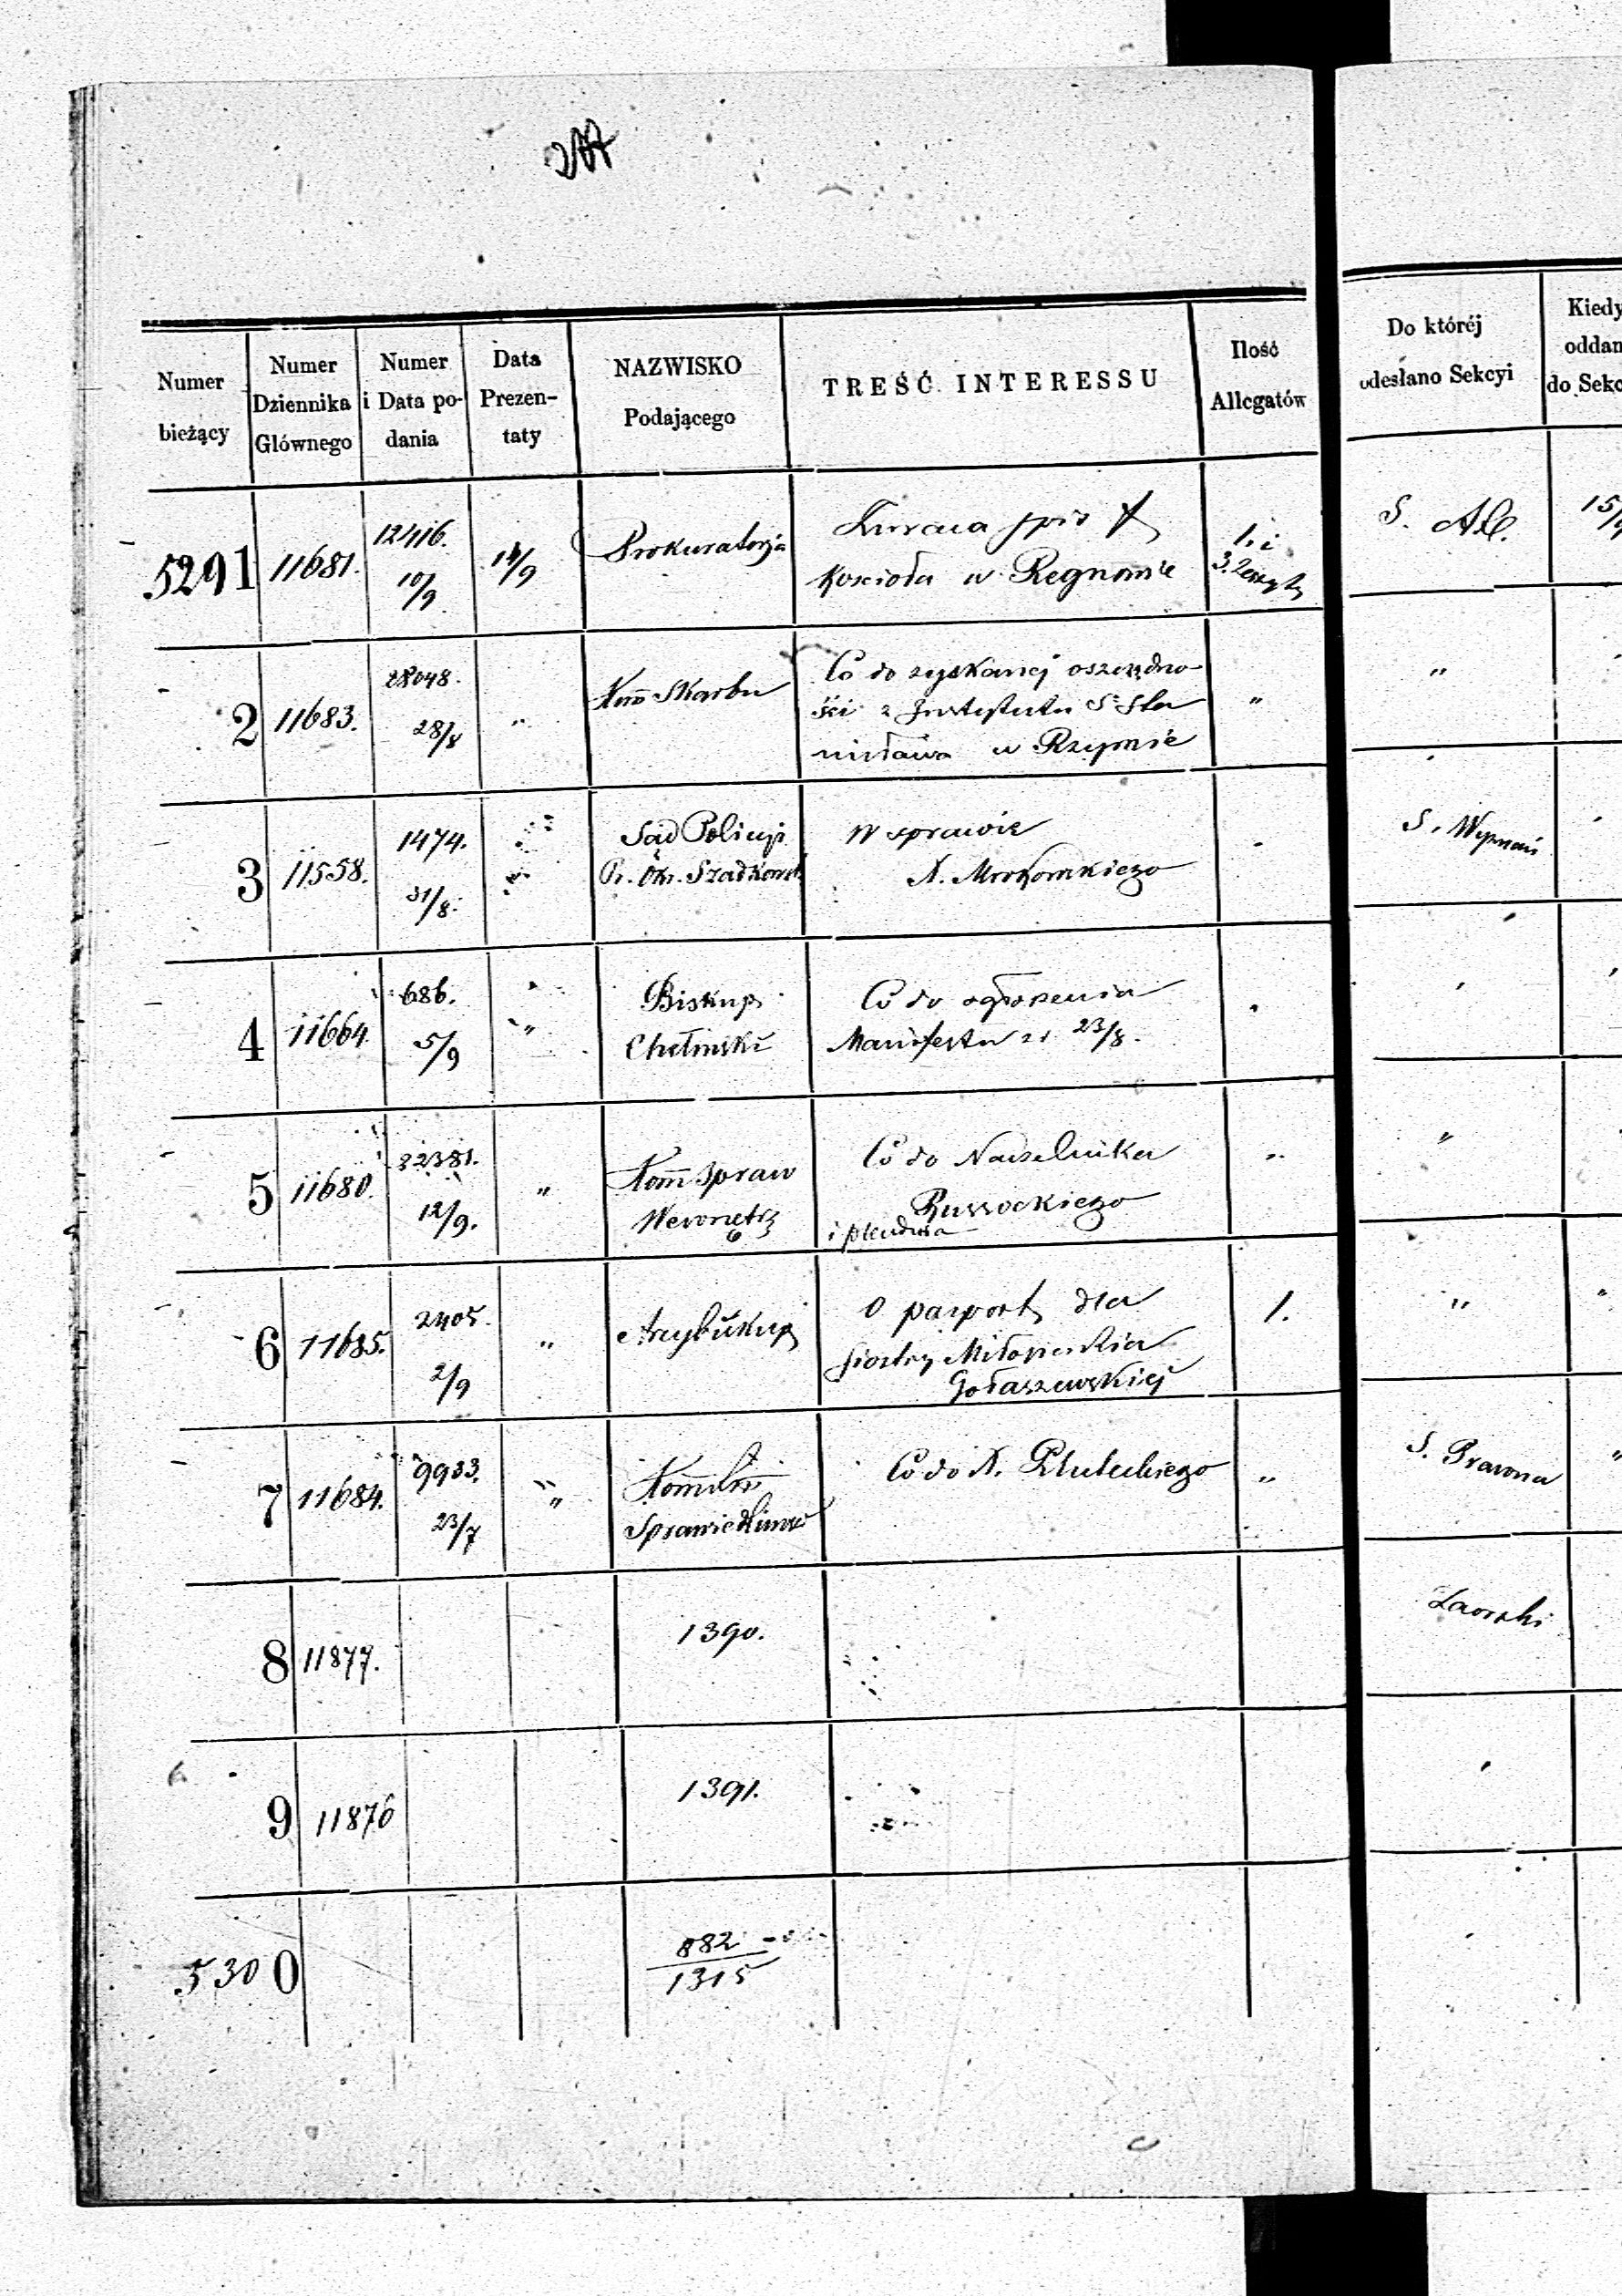 Numer bieżący
Numer Dziennika Głównego
Numer i Data podania
Data Prezentaty
NAZWISKO Podającego
TREŚĆ INTERESSU
Ilość Allegatów
Do któréj odesłano Sekcyi
Kiedy
oddan
do Sekc
5291 11681. 12416. 10/9 14/9 Prokuratorja
Zwraca spis
Kościoła w Regnowie
1. i
3.
S. 15/
2 11683. 28048. 28/8 " Kom Skarbu
Co do zyskanej oszczędno
ści z Instytutu Sgo Sta
nisława w Rzymie
" "
3 11558. 1474. 31/8.
Sąd Policyi
Pr. Okr. Szadkows
W sprawie
X.
S. Wyznań
4 11664. 686. 5/9 "
Biskup
Chełmiński
Co do ogłoszenia
Manifestu z d 23/8.
5 11680. 32381. 12/9. "
Kom Spraw
Wewnętrz
Co do Naczelnika
Russockiego
"
6 11685. 2405. 2/9 " Arcybiskup
O paszport dla
siostry Miłosierdzia
Gołaszewskiej
1. "
7 11684. 9933. 23/7 "
Sprawiedliwoś
Co do X.
" S. Prawna "
8 11877. 1390.
9 11876 1391.
5300 882
1315